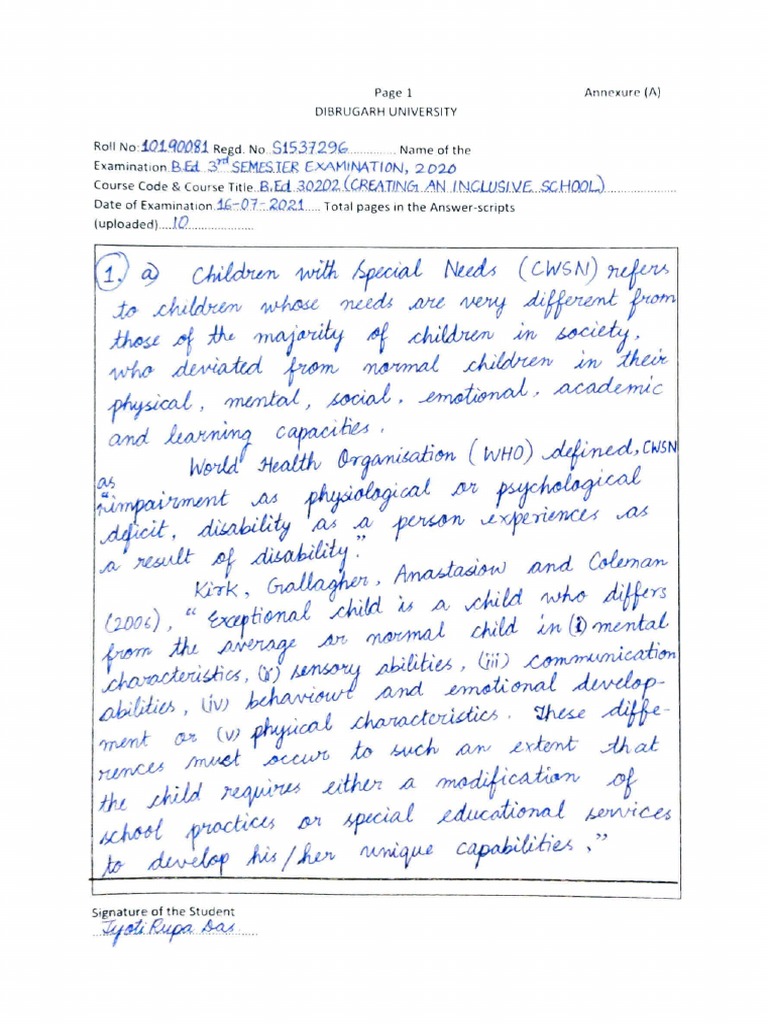 Page 1
Annexure (A)
DIBRUGARH UNIVERSITY
Roll No: 10190081 Regd. No. S1537296 ............. Name of the
Examination B.Ed. 3rd SEMESTER EXAMINATION, 2020
Course Code & Course Title. B.Ed 30202 (CREATING AN INCLUSIVE SCHOOL)
Date of Examination 16-07-2021 ..... Total pages in the Answer-scripts
(uploaded)....10....................
1. a) Children with Special Needs (CWSN) refers
to children whose needs are very different from
those of the majority of children in society,
who deviated from normal children in their
physical, mental, social, emotional, academic
and learning capacities.
World Health Organisation (WHO) defined, CWSN
as
"impairment as physiological or psychological
deficit, disability as a person experiences as
a result of disability."
Kirk, Gallagher, Anastasiow and Coleman
(2006), "Exceptional child is a child who differs
from the average or normal child in (i) mental
characteristics, (ii) sensory abilities, (iii) communication
abilities, (iv) behaviour and emotional develop-
ment or (v) physical characteristics. These diffe-
rences must occur to such an extent that
the child requires either a modification of
school practices or special educational services
to develop his/her unique capabilities."
Signature of the Student
Jyoti Rupa Das